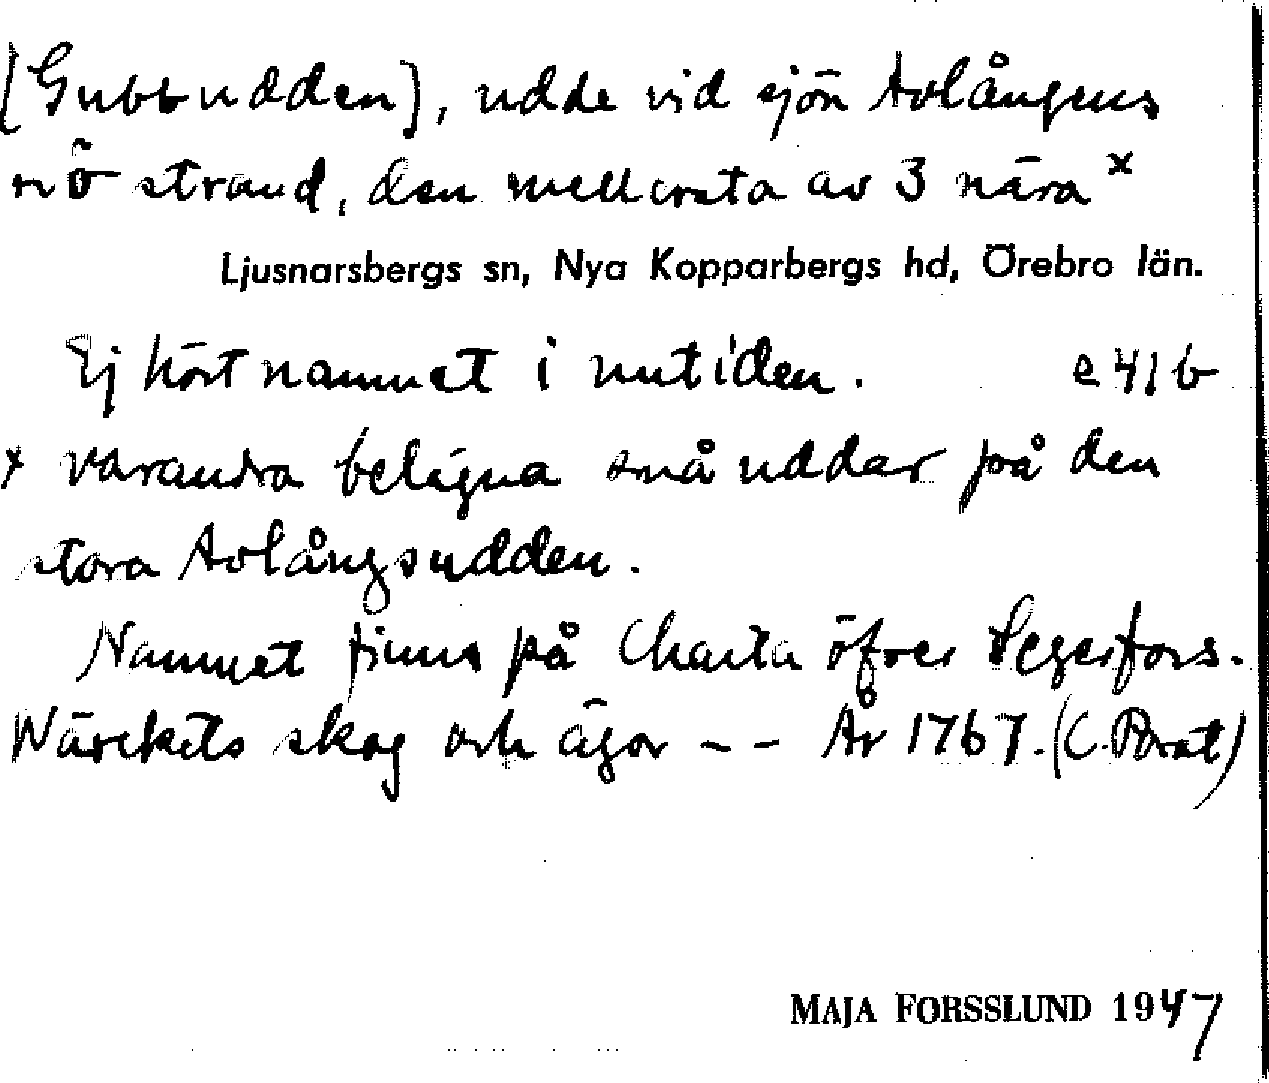 [Gubbudden], udde vid sjön Avlångens
nö strand, den mellersta av 3 nära x
Ljusnarsbergs sn, Nya Kopparbergs hd, Örebro län.
Ej hört namnet i nutiden. e 41 b
x varandra belägna små uddar på den
stora Avlångsudden.
Namnet finns på Charta öfver Segerfors.
Wärckets skog och ägor -- År 1767. (C. Porat)
MAJA FORSSLUND 1947